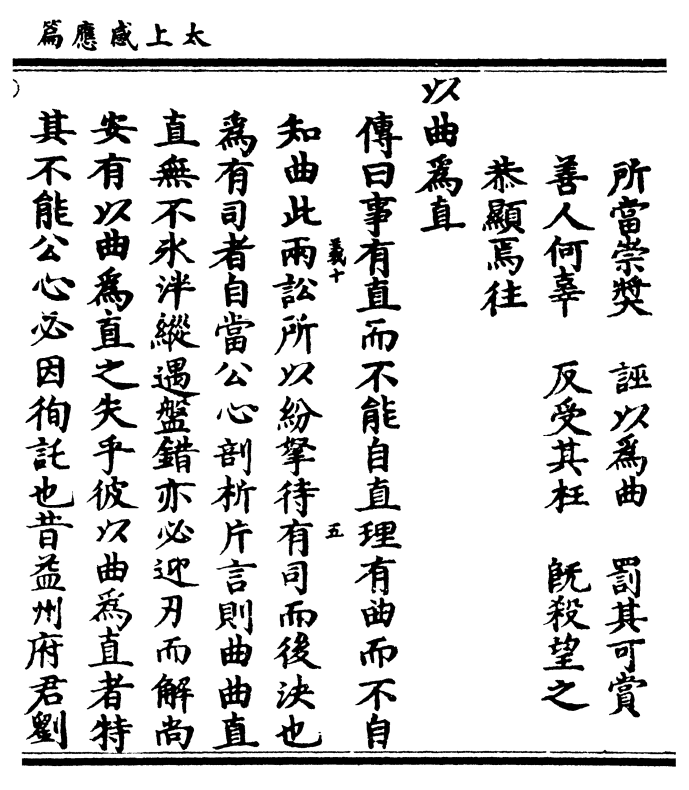 太上感應篇
所當崇奬 誣以爲曲 罰其可賞
善人何辜 反受其枉 旣殺望之
恭顯焉往
以曲爲直
傳曰事有直而不能自直理有曲而不自
義十 五
知曲此兩訟所以紛拏待有司而後決也
爲有司者自當公心剖析片言則曲曲直
直無不氷泮縱遇盤錯亦必迎刃而解尚
安有以曲爲直之失乎彼以曲爲直者特
其不能公心必因徇託也昔益州府君劉